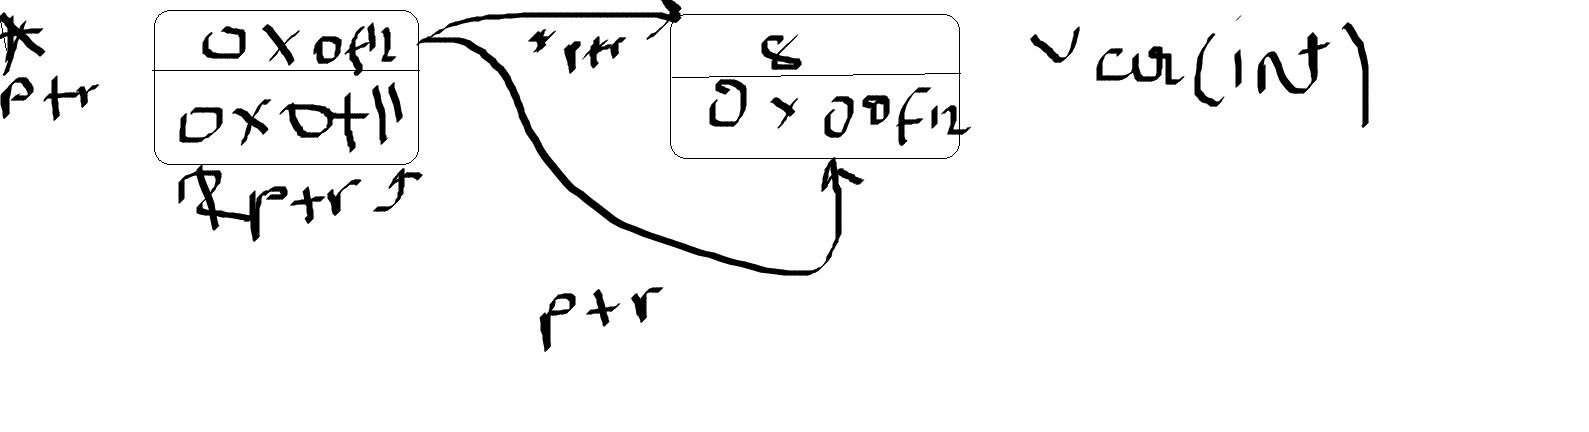 *
ptr
0x0f12
0x0f11
&ptr
*ptr
8
0x00f12
var(int)
ptr